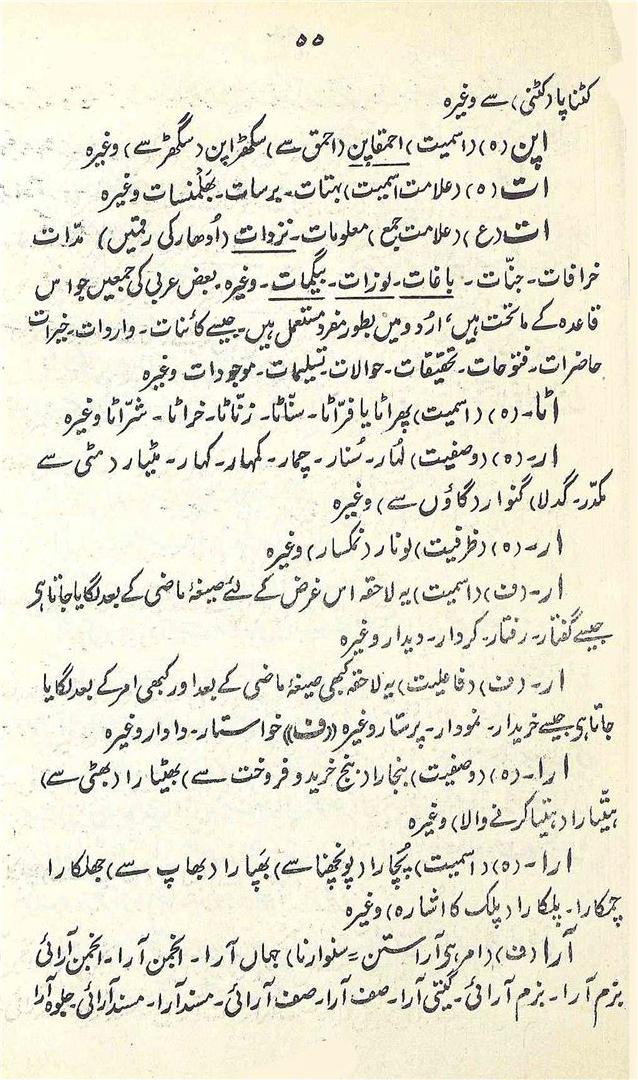 ۵۵
کٹناپا (کٹنی) سے وغیرہ
اپن (ہ) (اسمیت) احمقاپن (احمق سے) سگھڑاپن (سگھڑ سے) وغیرہ
ات (ہ) (علامت اسمیت) بہتات۔ برسات۔ بھلمنسات وغیرہ
ات (ع) (علامت جمع) معلومات۔ نزوات (اُدھار کی رقمیں) مدّات
خرافات۔ جنّات۔ باغات۔ لوزات۔ بیگمات۔ وغیرہ۔ بعض عربی کی جمعیں جو اس
قاعدہ کے ماتحت ہیں، اردو میں بطور مفرد مستعمل ہیں۔ جیسے کائنات۔ واردات۔ خیرات
حاضرات۔ فتوحات۔ تحقیقات۔ حوالات۔ تسلیمات۔ موجودات وغیرہ
اٹا۔ (ہ) (اسمیت) پھراٹا یا فرّاٹا۔ سنّاٹا۔ زنّاٹا۔ خراٹا۔ شرّاٹا وغیرہ
ار۔ (ہ) (وصفیت) لُہار۔ سُنار۔ چمار۔ کمہار۔ کہار۔ مٹیار (مٹی سے
مکدّر۔ گدلا) گنوار (گاؤں سے) وغیرہ
ار۔ (ہ) (ظرفیت) لونار (نمکسار) وغیرہ
ار۔ (ف) (اسمیت) یہ لاحقہ اس غرض کے لئے صیغۂ ماضی کے بعد لگایا جاتا ہی
جیسے گفتار۔ رفتار۔ کردار۔ دیدار وغیرہ
ار۔ (ف) (فاعلیت) یہ لاحقہ کبھی صیغۂ ماضی کے بعد اور کبھی امر کے بعد لگایا
جاتا ہی جیسے خریدار۔ نمودار۔ پرستار وغیرہ ((ف)) خواستار۔ دادار وغیرہ
ارا۔ (ہ) (وصفیت) بنجارا (بنج خرید و فروخت سے) بھٹیارا (بھٹی سے)
ہتّیارا (ہتیا کرنے والا) وغیرہ
ارا۔ (ہ) (اسمیت) پُچارا (پونچھنا سے) بَھپارا (بھاپ سے) جھلکارا
چمکارا۔ پلکارا (پلک کا اشارہ) وغیرہ
آرا (ف) (امر ہی آراستن = سنوارنا) جہاں آرا۔ انجمن آرا۔ انجمن آرائی
بزم آرا۔ بزم آرائی۔ گیتی آرا۔ صف آرا۔ صف آرائی۔ مسند آرا۔ مسند آرائی۔ جلوہ آرا